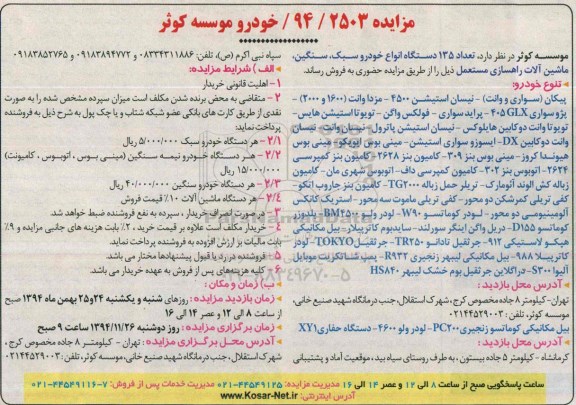 مزایده ۲۵۰۳ / ۹۴ / خودرو موسسه کوثر
موسسه کوثر در نظر دارد، تعداد ۱۳۵ دستگاه انواع خودرو سبک، سنگین،
ماشین آلات راهسازی مستعمل ذیل را از طریق مزایده حضوری به فروش رساند.
تنوع خودرو:
پیکان (سواری و وانت) - نیسان استیشن ۴۵۰۰ - مزدا وانت (۱۶۰۰ و ۲۰۰۰) -
پژو سواری ۴۰۵ GLX - پراید سواری - فولکس واگن - تویوتا استیشن هایس -
تویوتا وانت دوکابین هایلوکس - نیسان استیشن پاترول - نیسان وانت - نیسان
وانت دوکابین DX - ایسوزو سواری استیشن - مینی بوس ایویکو - مینی بوس
هیوندا کروز - مینی بوس بنز ۳۰۹ - کامیون بنز ۲۶۲۸ - کامیون بنز کمپرسی
۲۶۲۴ - اتوبوس بنز ۳۰۲ - کامیون کمپرسی داف - اتوبوس شهری مان - کامیون
زباله کش الوند آتومارک - تریلر حمل زباله TG۲۰۰۰ - کامیون بنز جاروب اتکو -
کفی تریلی کمرشکن دو محور - کفی تریلی ماموت سه محور - استریک کانکس
آلومینیومی دو محور - لودر کوماتسو W۹۰ - لودر ولوو BM۴۵۰۰ - بلدوزر
کوماتسو D۱۵۵ - دریل واگن اینگر سورلند - سایدبوم کاترپیلار - بیل مکانیکی
هپکو لاستیکی ۹۱۲ - جرثقیل تادانو TR۲۵۰ - جرثقیل TOKYO - لودر
کاترپیلار ۹۸۸ - بیل مکانیکی لیبهر زنجیری R۹۳۲ - پمپ شناکتریت موبایل
آلیوا S۳۰۰ - دراگلاین جرثقیل بوم خشک لیبهر HS۸۴۰
آدرس محل بازدید:
تهران - کیلومتر ۸ جاده مخصوص کرج، شهرک استقلال، جنب درمانگاه شهید صنیع خانی،
موسسه کوثر، تلفن: ۰۲۱۴۴۵۲۹۰۰۳
بیل مکانیکی کوماتسو زنجیری PC۲۰۰ - لودر ولو ۴۶۰۰ - دستگاه حفاری XY۱
آدرس محل بازدید:
کرمانشاه - کیلومتر ۵ جاده بیستون، به طرف روستای سیاه بید، موقعیت آماد و پشتیبانی
سپاه نبی اکرم (ص)، تلفن: ۰۸۳۳۴۳۱۱۸۸۶ و ۰۹۱۸۳۸۹۴۷۷۲ و ۰۹۱۸۳۸۵۲۷۶۵
الف) شرایط مزایده:
۱- اهلیت قانونی خریدار
۲- متقاضی به محض برنده شدن مکلف است میزان سپرده مشخص شده را به صورت
نقدی از طریق کارت های بانکی عضو شبکه شتاب و یا چک پول به شرح ذیل به فروشنده
پرداخت نماید:
۲/۱- هر دستگاه خودرو سبک ۵/۰۰۰/۰۰۰ ریال
۲/۲- هر دستگاه خودرو نیمه سنگین (مینی بوس، اتوبوس، کامیونت)
۱۵/۰۰۰/۰۰۰ ریال
۲/۳- هر دستگاه خودرو سنگین ۴۰/۰۰۰/۰۰۰ ریال
۲/۴- هر دستگاه ماشین آلات ۱۰٪ قیمت فروش
۳- در صورت انصراف خریدار، سپرده به نفع فروشنده ضبط خواهد شد.
۴- خریدار مکلف است علاوه بر قیمت خرید، ۲٪ بابت هزینه های جانبی مزایده و ۹٪
بابت مالیات بر ارزش افزوده به فروشنده پرداخت نماید.
۵- فروشنده در رد یا قبول پیشنهادها مختار می باشد.
۶- کلیه هزینه های پس از فروش به عهده خریدار می باشد.
ب) زمان و مکان:
زمان بازدید مزایده: روزهای شنبه و یکشنبه ۲۴ و ۲۵ بهمن ماه ۱۳۹۴ صبح
از ساعت ۸ الی ۱۲ و عصر ۱۴ الی ۱۶
زمان برگزاری مزایده: روز دوشنبه ۱۳۹۴/۱۱/۲۶ ساعت ۹ صبح
آدرس محل برگزاری مزایده: تهران - کیلومتر ۸ جاده مخصوص کرج،
شهرک استقلال، جنب درمانگاه شهید صنیع خانی، موسسه کوثر، تلفن: ۰۲۱۴۴۵۲۹۰۰۳
ساعت پاسخگویی صبح از ساعت ۸ الی ۱۲ و عصر ۱۴ الی ۱۶ مدیریت مزایده: ۴۴۵۴۹۱۲۵-۰۲۱ مدیریت خدمات پس از فروش: ۷-۴۴۵۴۹۱۱۶-۰۲۱
آدرس اینترنتی: www.Kosar-Net.ir